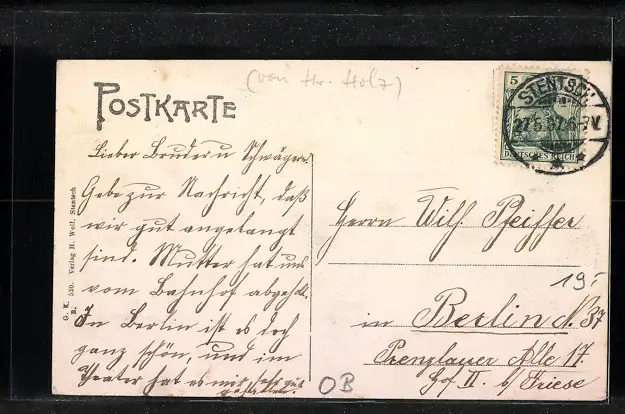 (von Hr. Holz)
POSTKARTE
Lieber Bruder u Schwägerin
Gebe zur Nachricht, daß
wir gut angelangt
sind. Mutter hat uns
vom Bahnhof abgeholt.
In Berlin ist es doch
ganz schön, und im
Theater hat es mir sehr gut
gefallen.
G. K. 550. Verlag H. Wolf, Stentsch
B.
5
DEUTSCHES REICH
STENTSCH
27.5.07.6-7V.
Herrn Wilh. Pfeiffer
19.-
in Berlin N. 37
Prenzlauer Alle 17
Hof II. b/ Friese
OB